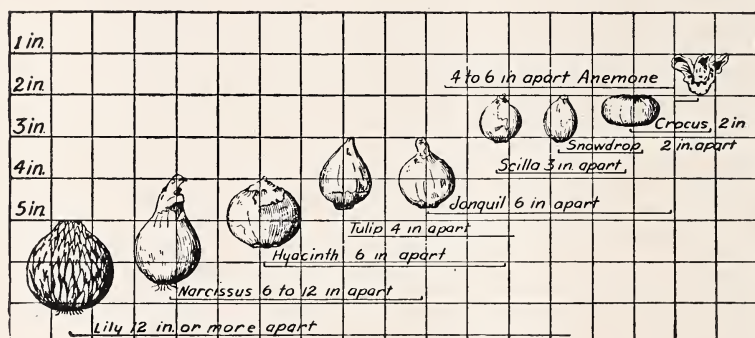 1 in.
2 in.
3 in.
4 in.
5 in.
4 to 6 in apart Anemone
Crocus, 2 in
Snowdrop, 2 in. apart
Scilla 3 in apart
Jonquil 6 in apart
Tulip 4 in apart
Hyacinth 6 in apart
Narcissus 6 to 12 in apart
Lily 12 in. or more apart